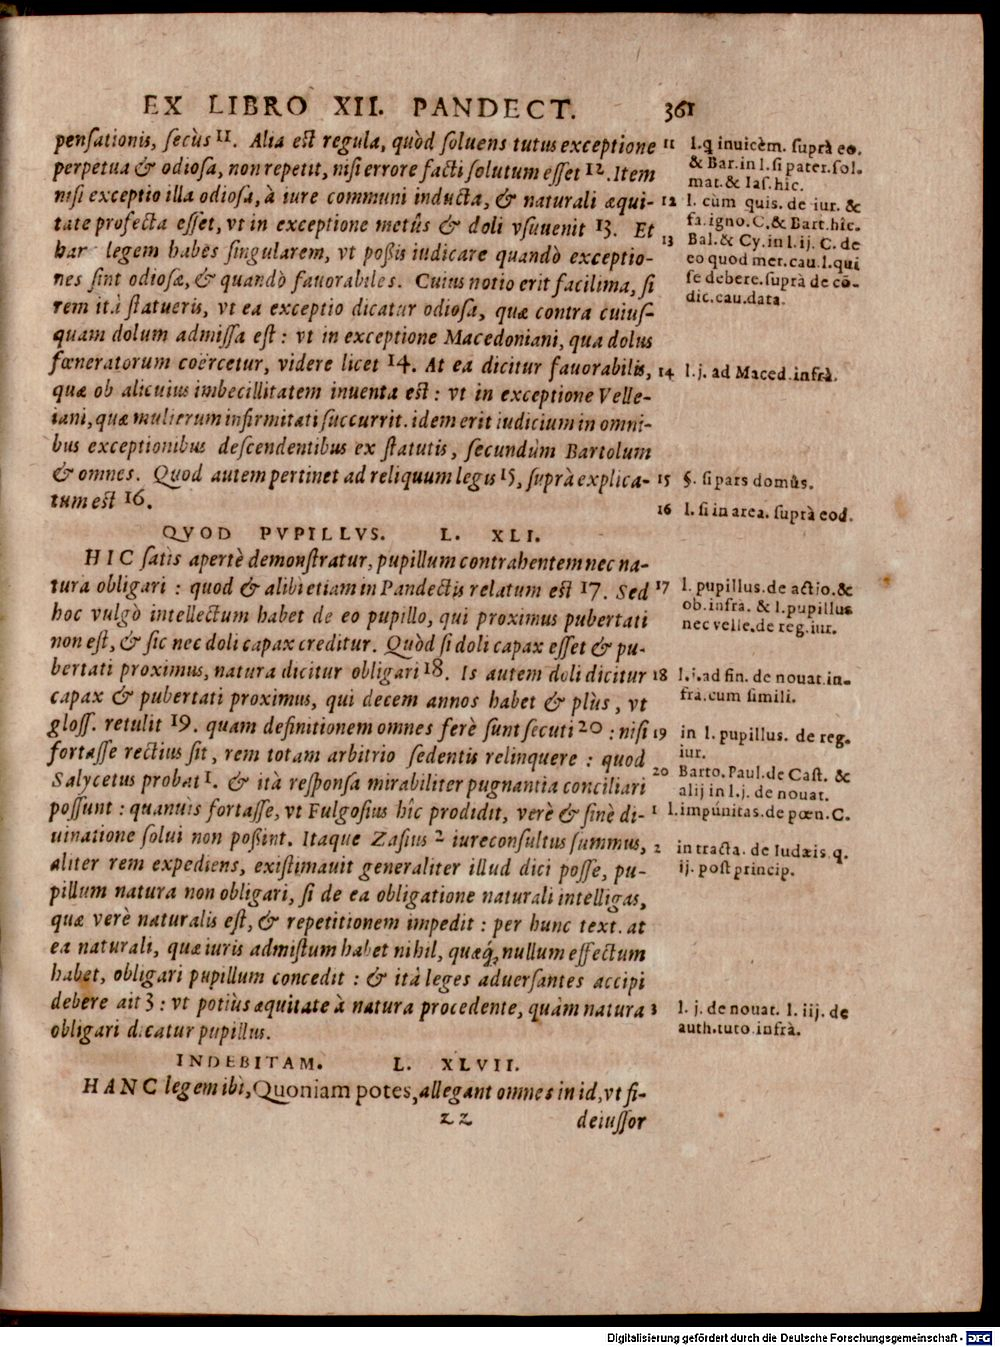 EX LIBRO XII. PANDECT. 361
pensationis, secùs 11. Alia est regula, quòd soluens tutus exceptione
perpetua & odiosa, non repetit, nisi errore facti solutum esset 12. Item
nisi exceptio illa odiosa, à iure communi inducta, & naturali æqui-
tate profecta esset, vt in exceptione metûs & doli vsuuenit 13. Et
legem habes singularem, vt poßis iudicare quandò exceptio-
nes sint odiosæ, & quandò fauorabiles. Cuius notio erit facilima, si
rem ità statueris, vt ea exceptio dicatur odiosa, quæ contra cuius-
quam dolum admissa est: vt in exceptione Macedoniani, qua dolus
fœneratorum coërcetur, videre licet 14. At ea dicitur fauorabilis,
quæ ob alicuius imbecillitatem inuenta est: vt in exceptione Velle-
iani, quæ mulierum infirmitati succurrit. idem erit iudicium in omni-
bus exceptionibus descendentibus ex statutis, secundùm Bartolum
& omnes. Quod autem pertinet ad reliquum legis 15, suprà explica-
tum est 16.
QVOD PVPILLVS. L. XLI.
HIC satis apertè demonstratur, pupillum contrahentem nec na-
tura obligari: quod & alibi etiam in Pandectis relatum est 17. Sed
hoc vulgò intellectum habet de eo pupillo, qui proximus pubertati
non est, & sic nec doli capax creditur. Quòd si doli capax esset & pu-
bertati proximus, natura dicitur obligari 18. Is autem doli dicitur
capax & pubertati proximus, qui decem annos habet & plùs, vt
gloss. retulit 19. quam definitionem omnes ferè sunt secuti 20: nisi
fortasse rectius sit, rem totam arbitrio sedentis relinquere: quod
Salycetus probat 1. & ità responsa mirabiliter pugnantia conciliari
possunt: quanuis fortasse, vt Fulgosius hîc prodidit, verè & sinè di-
uinatione solui non poßint. Itaque Zasius 2 iureconsultus summus,
aliter rem expediens, existimauit generaliter illud dici posse, pu-
pillum natura non obligari, si de ea obligatione naturali intelligas,
quæ verè naturalis est, & repetitionem impedit: per hunc text. at
ea naturali, quæ iuris admistum habet nihil, quæq́; nullum effectum
habet, obligari pupillum concedit: & ità leges aduersantes accipi
debere ait 3: vt potiùs æquitate à natura procedente, quàm natura
obligari dicatur pupillus.
INDEBITAM. L. XLVII.
HANC legem ibi, Quoniam potes, allegant omnes in id, vt fi-
zz deiussor
11 l. q inuicèm. suprà eo.
& Bar. in l. si pater. sol.
mat. & Ias. hic.
12 l. cùm quis. de iur. &
fa. igno. C. & Bart. hîc.
13 Bal. & Cy. in l. ij. C. de
eo quod mer. cau. l. qui
se debere. suprà de cō-
dic. cau. data.
14 l. j. ad Maced. infrà.
15 §. si pars domûs.
16 l. si in area. suprà eod.
17 l. pupillus. de actio. &
ob. infrà. & l. pupillus
nec velle. de reg. iur.
18 l. j. ad fin. de nouat. in-
frà. cum simili.
19 in l. pupillus. de reg.
iur.
20 Barto. Paul. de Cast. &
alij in l. j. de nouat.
1 l. impúnitas. de pœn. C.
2 in tracta. de Iudæis. q.
ij. post princip.
3 l. j. de nouat. l. iij. de
auth. tuto. infrà.
Digitalisierung gefördert durch die Deutsche Forschungsgemeinschaft - DFG